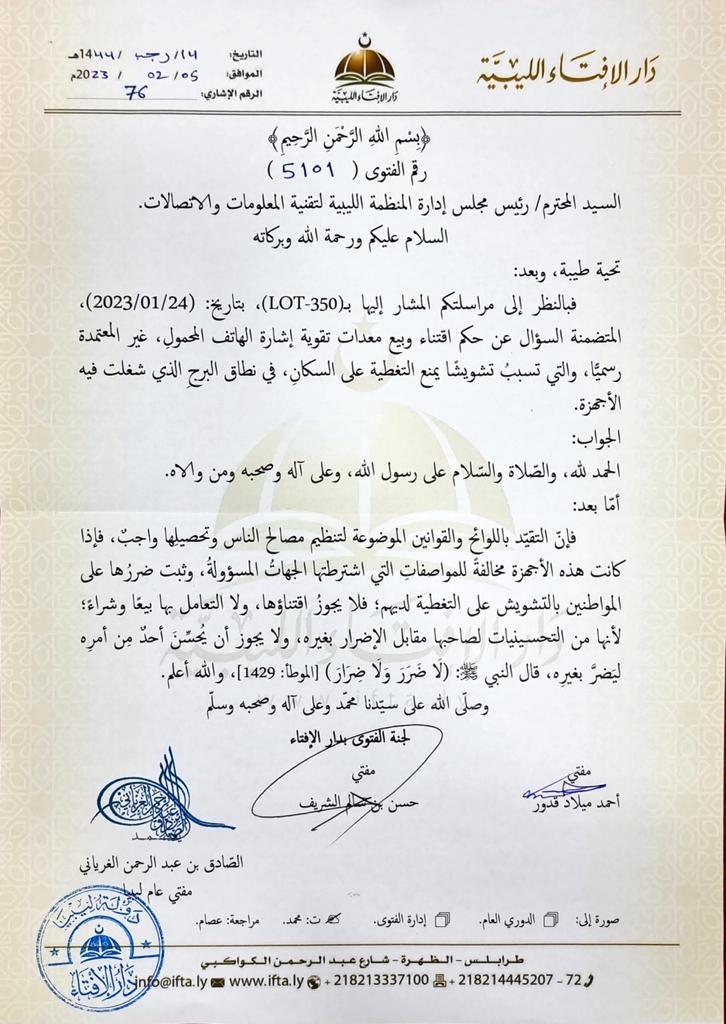 دَارُ الإِفْتَاءِ اللِّيبِيَّة
دَارُ الإِفْتَاءِ اللِّيبِيَّة
التاريخ: 14/ رجب /1444هـ
الموافق: 05/ 02 / 2023م
الرقم الإشاري: 76
﴿بِسْمِ اللهِ الرَّحْمَنِ الرَّحِيمِ﴾
رقم الفتوى ( 5101 )
السيد المحترم/ رئيس مجلس إدارة المنظمة الليبية لتقنية المعلومات والاتصالات.
السلام عليكم ورحمة الله وبركاته
تحية طيبة، وبعد:
فبالنظر إلى مراسلتكم المشار إليها بـ(LOT-350)، بتاريخ: (2023/01/24)،
المتضمنة السؤال عن حكم اقتناء وبيع معدات تقوية إشارة الهاتف المحمول، غير المعتمدة
رسميًّا، والتي تسببُ تشويشًا يمنع التغطية على السكانِ، في نطاق البرجِ الذي شغلت فيه
الأجهزة.
الجواب:
الحمد لله، والصّلاة والسّلام على رسول الله، وعلى آله وصحبه ومن والاه.
أمّا بعد:
فإنّ التقيّد باللوائح والقوانين الموضوعة لتنظيم مصالح الناس وتحصيلِها واجبٌ، فإذا
كانت هذه الأجهزة مخالفةً للمواصفاتِ التي اشترطتها الجهاتُ المسؤولةُ، وثبت ضررُها على
المواطنين بالتشويش على التغطية لديهم؛ فلا يجوزُ اقتناؤها، ولا التعامل بها بيعًا وشراءً؛
لأنها من التحسينيات لصاحبها مقابل الإضرار بغيره، ولا يجوز أن يُحسِّنَ أحدٌ مِن أمرِه
ليَضرَّ بغيرِه، قال النبي ﷺ: (لَا ضَرَرَ وَلَا ضِرَارَ) [الموطأ: 1429]، والله أعلم.
وصلّى الله على سيّدنا محمّد وعلى آله وصحبه وسلّم
لجنة الفتوى بدار الإفتاء
مفتي
أحمد ميلاد قدور
مفتي
حسن بن سالم الشريف
الصّادق بن عبد الرحمن الغرياني
مفتي عام ليبيا
صورة إلى:
الدوري العام.
إدارة الفتوى.
ت: محمد.
مراجعة: عصام.
دولة ليبيا
دار الإفتاء
طرابلس - الظهرة - شارع عبد الرحمن الكواكبي
info@ifta.ly www.ifta.ly + 218213337100 + 218214445207 - 72